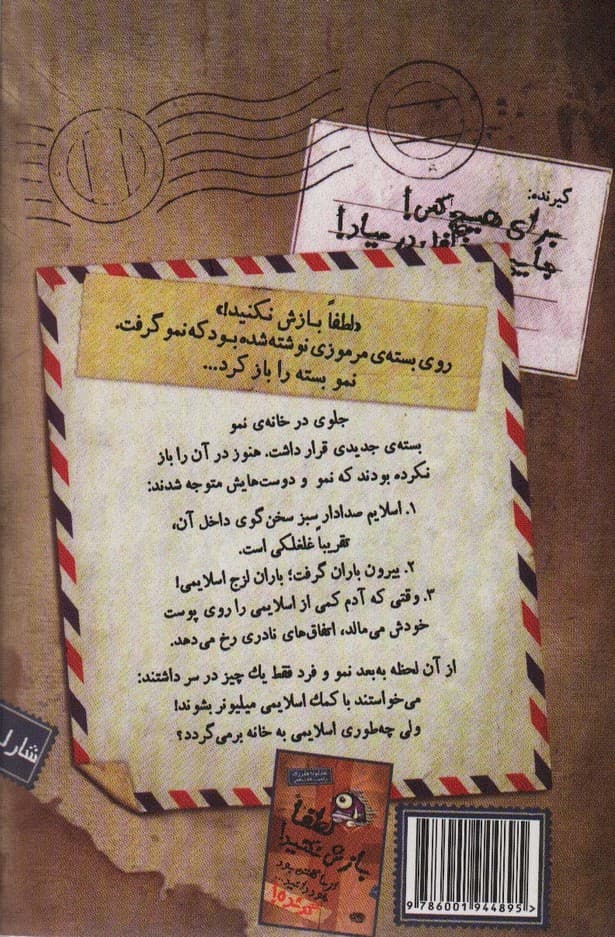 گیرنده:
برای هیچ کس!
«لطفاً بازش نکنید!»
روی بسته‌ی مرموزی نوشته شده بود که نمو گرفت.
نمو بسته را باز کرد...
جلوی در خانه‌ی نمو
بسته‌ی جدیدی قرار داشت. هنوز در آن را باز
نکرده بودند که نمو و دوست‌هایش متوجه شدند:
۱. اسلایم صدادار سبز سخن‌گوی داخل آن،
تقریباً غلغلکی است.
۲. بیرون باران گرفت؛ باران لزج اسلایمی!
۳. وقتی که آدم کمی از اسلایمی را روی پوست
خودش می‌مالد، اتفاق‌های نادری رخ می‌دهد.
از آن لحظه به‌بعد نمو و فرد فقط یك چیز در سر داشتند:
می‌خواستند با کمك اسلایمی میلیونر بشوند!
ولی چه‌طوری اسلایمی به خانه برمی‌گردد؟
لطفا
بازش نکنید!
9 786001 944895 >